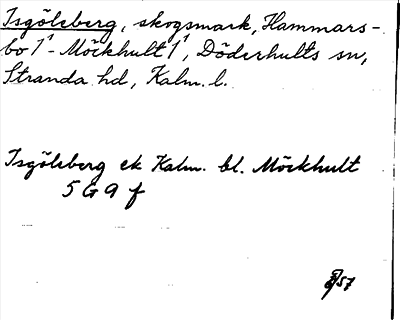 Isgölsberg, skogsmark, Hammars-
bo 1¹ - Möckhult 1¹, Döderhults sn,
Stranda hd, Kalm. l.
Isgölsberg ek Kalm. bl. Möckhult
5 G 9 f
57